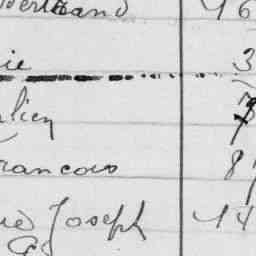 Bertrand 46
ie 3
lien 7
francois 8
ie Joseph 44